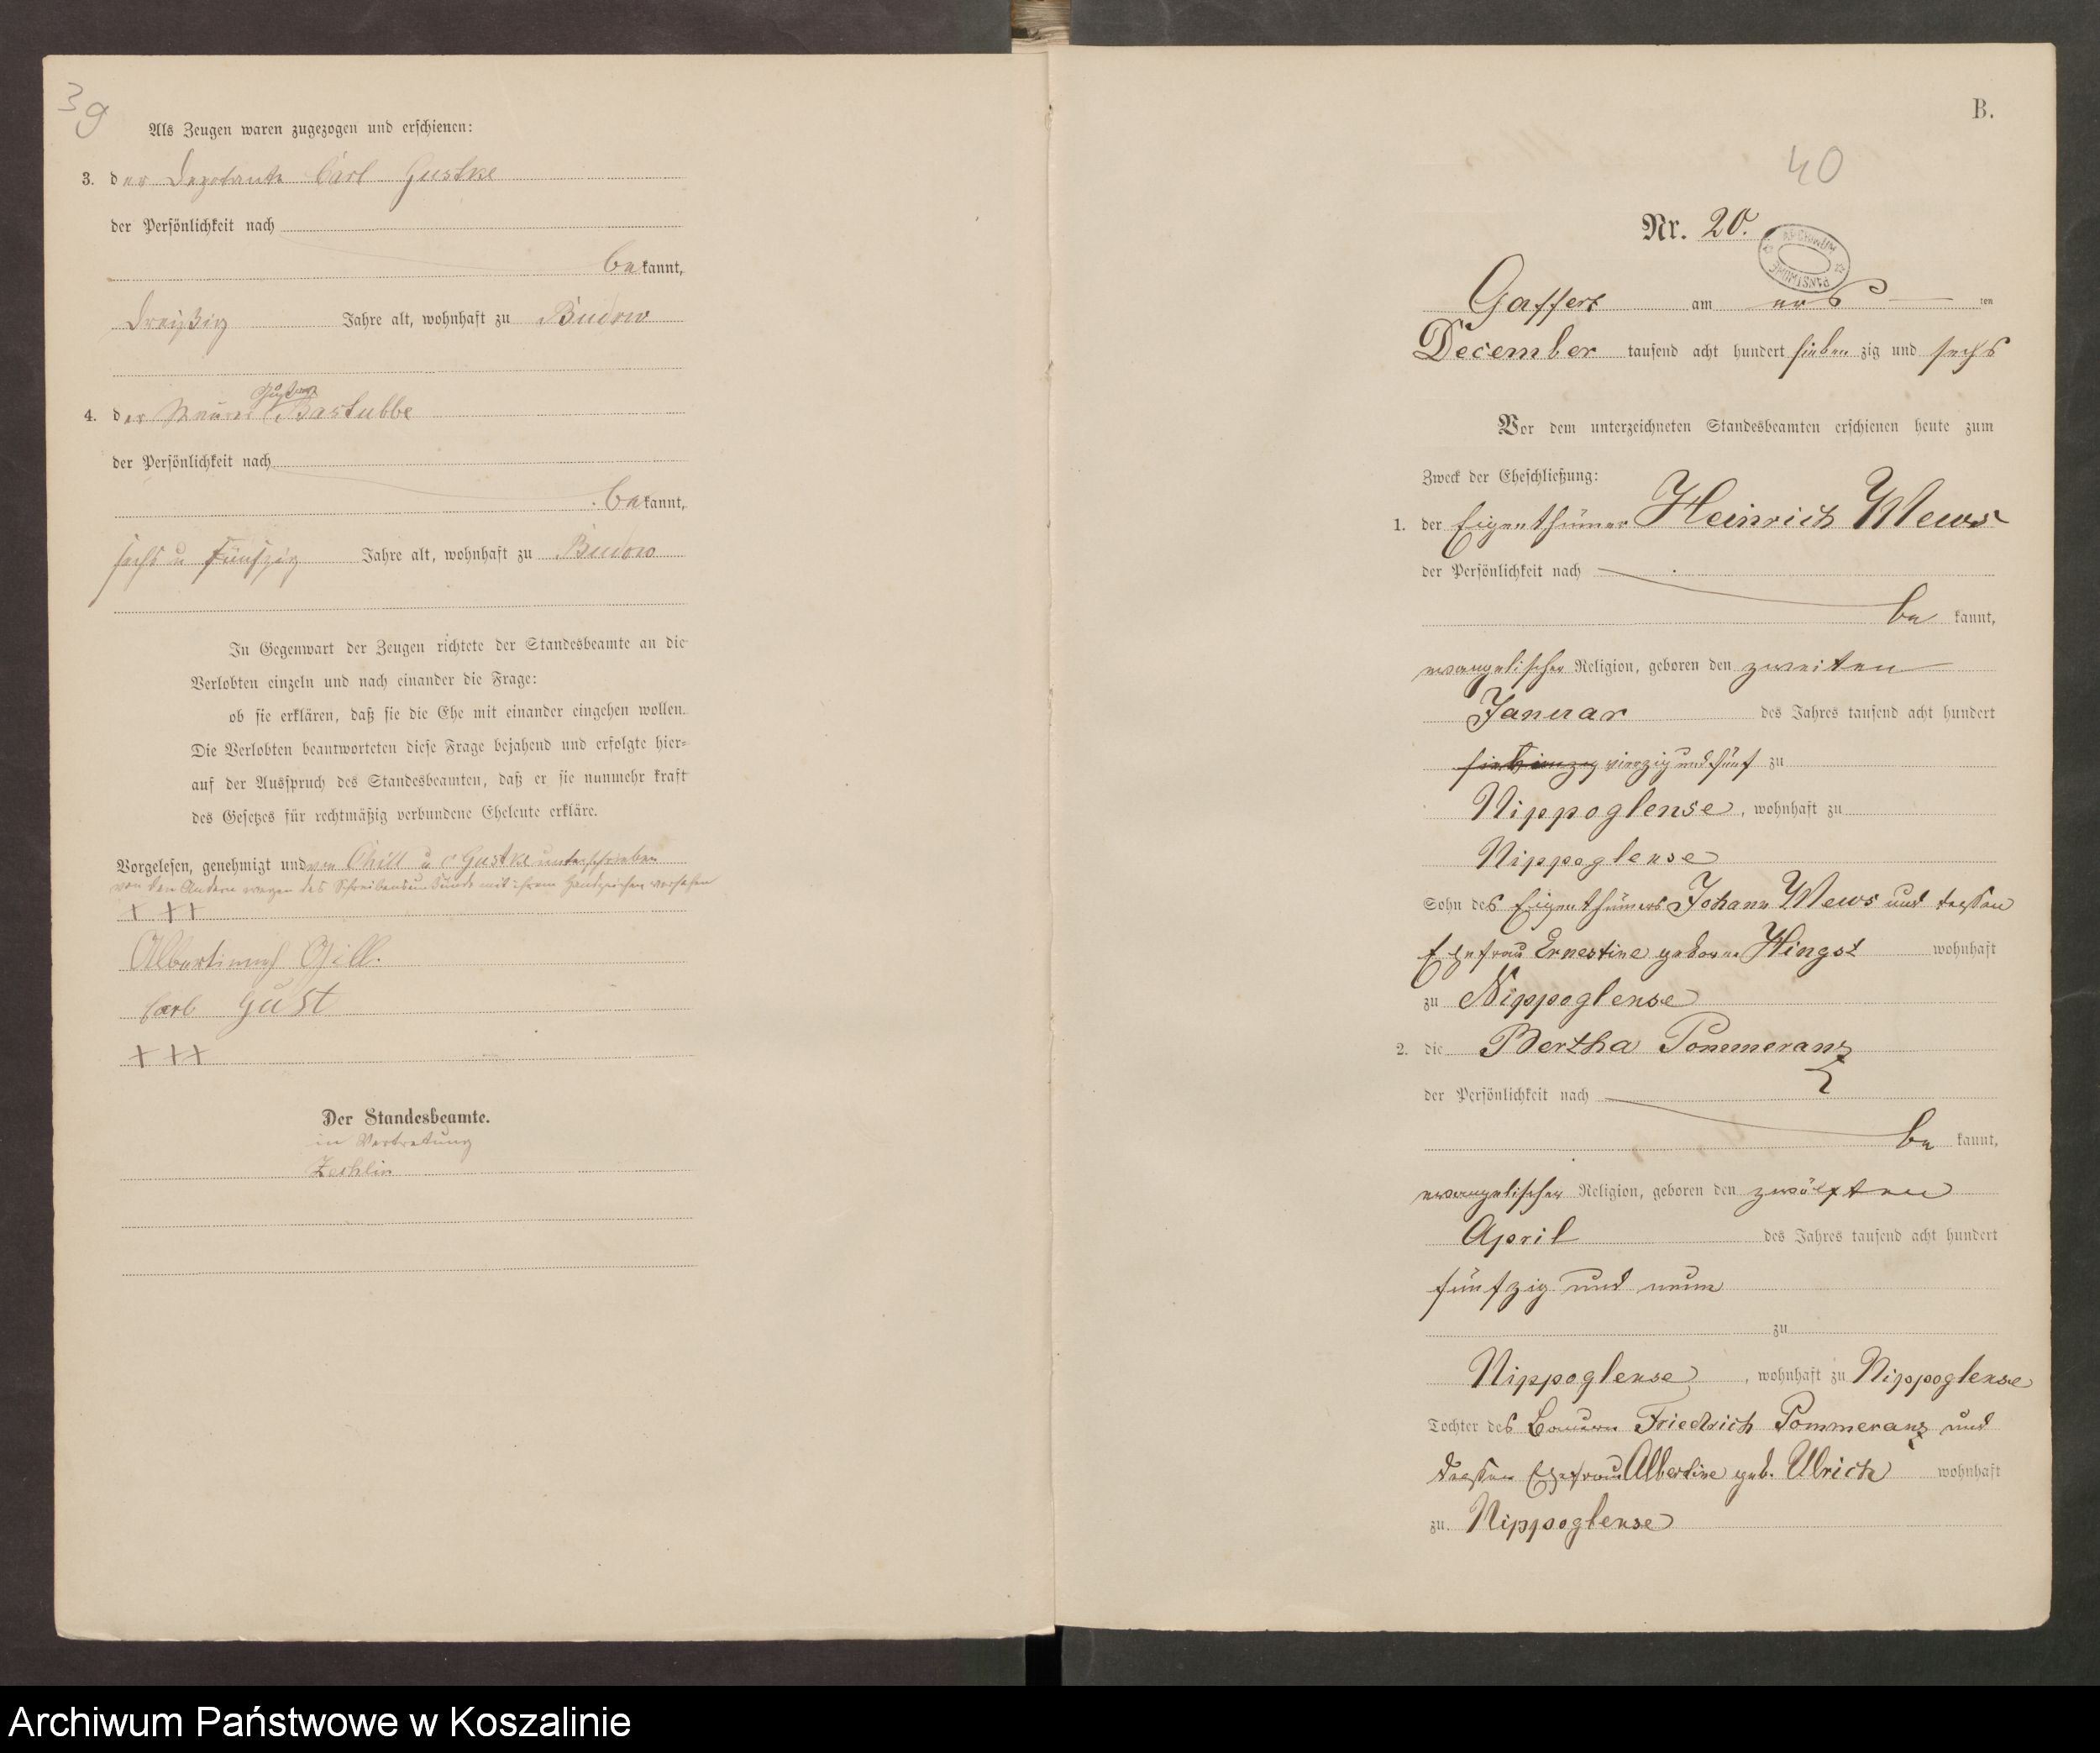 39
Als Zeugen waren zugezogen und erschienen:
3. der Deputante Carl Gustke
der Persönlichkeit nach
bekannt,
Dreißig Jahre alt, wohnhaft zu Budow
Gustav
4. der Maurer Bastubbe
der Persönlichkeit nach
bekannt,
sechs u fünfzig Jahre alt, wohnhaft zu Budow
In Gegenwart der Zeugen richtete der Standesbeamte an die
Verlobten einzeln und nach einander die Frage:
ob sie erklären, daß sie die Ehe mit einander eingehen wollen.
Die Verlobten beantworteten diese Frage bejahend und erfolgte hier=
auf der Ausspruch des Standesbeamten, daß er sie nunmehr kraft
des Gesetzes für rechtmäßig verbundene Eheleute erkläre.
Vorgelesen, genehmigt und von u C Gustke unterschrieben
von den Andern wegen des Schreibensunkunde mit ihrem Handzeichen versehen
+ ++
Carl Gust
+ ++
Der Standesbeamte.
in Vertretung
Zechlin
B.
40
Nr. 20.
ARCHIWUM PAŃSTWOWE
Gaffert am ten
December tausend acht hundert siebenzig und sechs
Vor dem unterzeichneten Standesbeamten erschienen heute zum
Zweck der Eheschließung:
1. der Eigenthümer Heinrich Mews
der Persönlichkeit nach
bekannt,
evangelischer Religion, geboren den zweiten
Januar des Jahres tausend acht hundert
vierzig und fünf zu
Nippoglense, wohnhaft zu
Nippoglense
Sohn des Eigenthümers Johann Mews und dessen
Ehefrau Ernestine geborne Hingst wohnhaft
zu Nippoglense
2. die Bertha Pommeranz
der Persönlichkeit nach
bekannt,
evangelischer Religion, geboren den zwölften
April des Jahres tausend acht hundert
fünfzig und neun
zu
Nippoglense, wohnhaft zu Nippoglense
Tochter des Bauern Friedrich Pommeranz und
dessen Ehefrau Albertine geb. Ulrich wohnhaft
zu Nippoglense
Archiwum Państwowe w Koszalinie